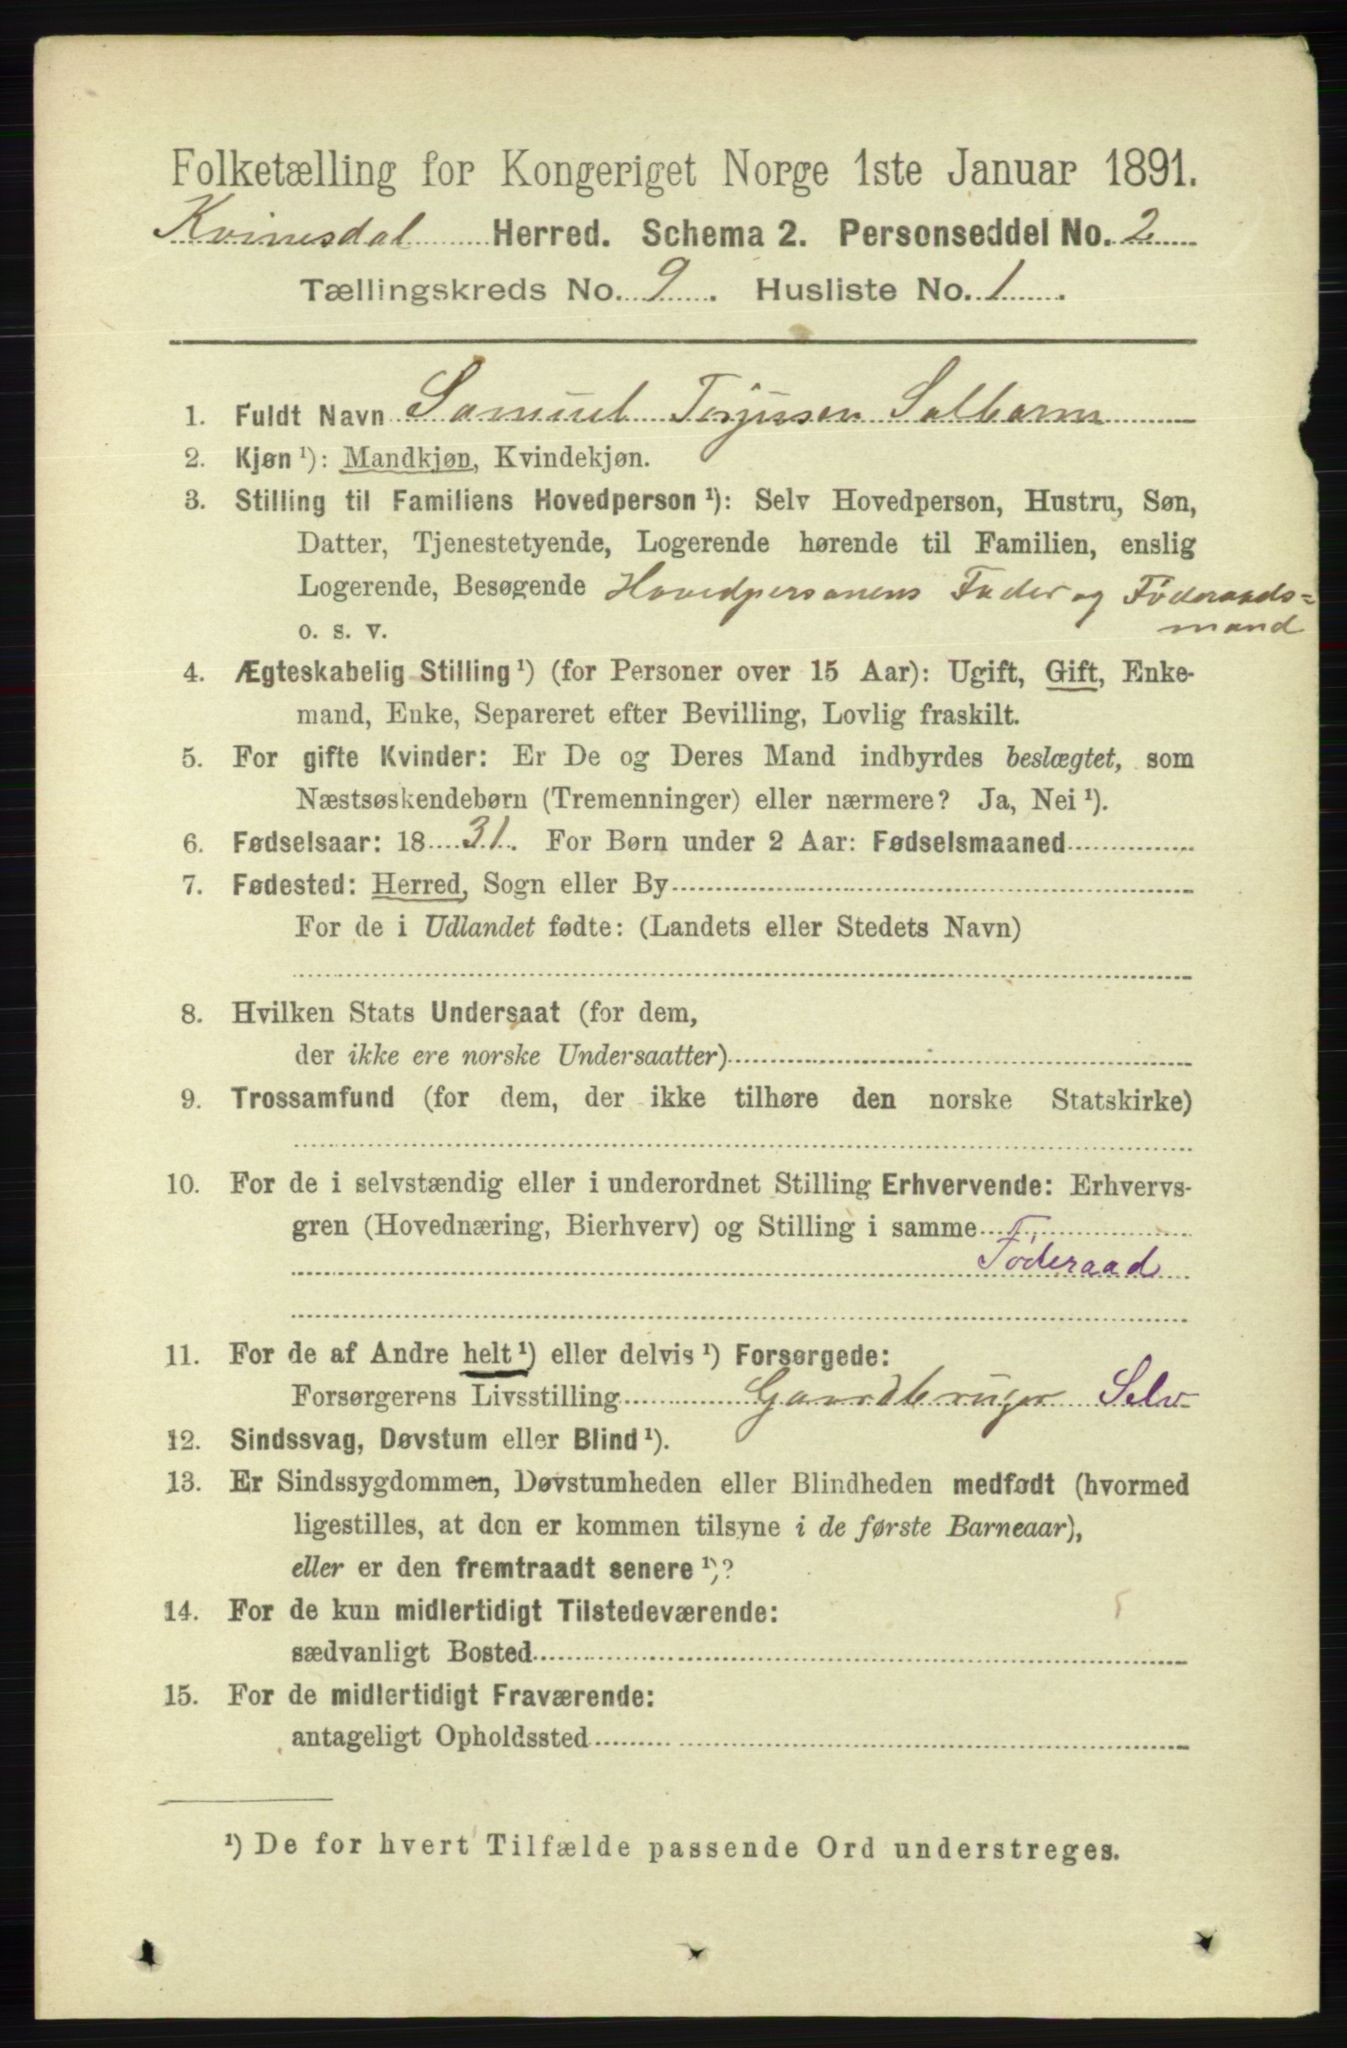 Folketælling for Kongeriget Norge 1ste Januar 1891.
Kvinesdal Herred. Schema 2. Personseddel No. 2
Tællingskreds No. 9. Husliste No. 1.
1. Fuldt Navn Samuel Torjussen Salbarm
2. Kjøn ¹): Mandkjøn, Kvindekjøn.
3. Stilling til Familiens Hovedperson ¹): Selv Hovedperson, Hustru, Søn,
Datter, Tjenestetyende, Logerende hørende til Familien, enslig
Logerende, Besøgende Hovedpersonens Fader og Föderaads=
o. s. v. mand
4. Ægteskabelig Stilling ¹) (for Personer over 15 Aar): Ugift, Gift, Enke-
mand, Enke, Separeret efter Bevilling, Lovlig fraskilt.
5. For gifte Kvinder: Er De og Deres Mand indbyrdes beslægtet, som
Næstsøskendebørn (Tremenninger) eller nærmere? Ja, Nei ¹).
6. Fødselsaar: 1831. For Børn under 2 Aar: Fødselsmaaned
7. Fødested: Herred, Sogn eller By
For de i Udlandet fødte: (Landets eller Stedets Navn)
8. Hvilken Stats Undersaat (for dem,
der ikke ere norske Undersaatter)
9. Trossamfund (for dem, der ikke tilhøre den norske Statskirke)
10. For de i selvstændig eller i underordnet Stilling Erhvervende: Erhvervs-
gren (Hovednæring, Bierhverv) og Stilling i samme
Föderaad
11. For de af Andre helt ¹) eller delvis ¹) Forsørgede:
Forsørgerens Livsstilling Gaardbruger Selv
12. Sindssvag, Døvstum eller Blind ¹).
13. Er Sindssygdommen, Døvstumheden eller Blindheden medfødt (hvormed
ligestilles, at den er kommen tilsyne i de første Barneaar),
eller er den fremtraadt senere ¹)?
14. For de kun midlertidigt Tilstedeværende:
sædvanligt Bosted
15. For de midlertidigt Fraværende:
antageligt Opholdssted
¹) De for hvert Tilfælde passende Ord understreges.